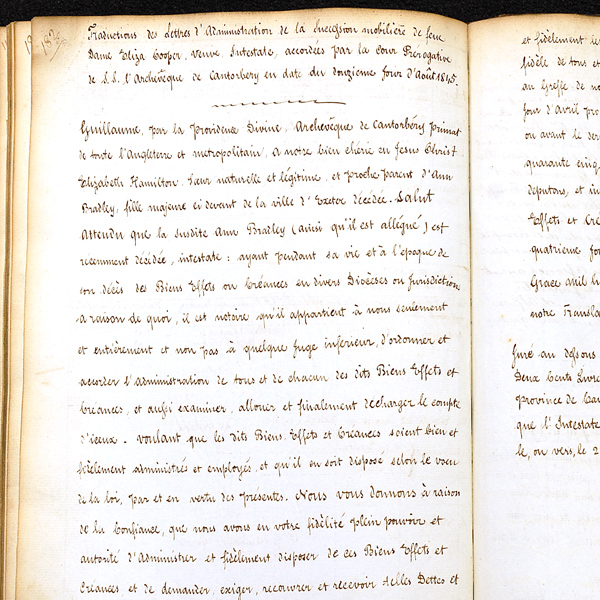 Traductions des Lettres d'Administration de la Succession mobilière de feue
Dame Eliza Cooper, veuve, Intestate, accordées par la Cour Prerogative
de S.S. l'Archevêque de Cantorbery en date du douzieme Jour d'Août 1845.
Guillaume, par la providence Divine, Archevêque de Cantorbéry Primat
de toute l'Angleterre et métropolitain, a notre bien chérie en Jesus Christ
Elizabeth Hamilton, Sœur naturelle et légitime, et proche parent d'Ann
Bradley, fille majeure ci devant de la ville d'Exeter décédée. Salut
Attendu que la susdite Ann Bradley (ainsi qu'il est allégué) est
recemment décédée, intestate : ayant pendant sa vie et à l'epoque de
son décès des Biens Effets ou Créances en divers Diocèses ou Jurisdiction
a raison de quoi, il est notoire qu'il appartient à nous seulement
et entièrement et non pas à quelque Juge inferieur, d'ordonner et
accorder l'Administration de tous et de chacun des dits Biens Effets et
Créances, et aussi examiner, allouer et finalement decharger le compte
d'iceux. voulant que les dits Biens Effets et Créances soient bien et
fidèlement administrés et employés, et qu'il en soit disposé selon le vœu
de la loi, par et en vertu des présentes. Nous vous donnons à raison
de la Confiance, que nous avons en votre fidèlité plein pouvoir et
autorité d'Administrer et fidèlement disposer de ces Biens Effets et
Créances et de demander, exiger, recouvrer et recevoir telles Dettes et
et fidèlement
fidèle de tous et
au Greffe de
Jour d'Avril
ou avant le
quarante cinq,
deputons, et
Effets et Cré
quatrieme
Grace mil
notre
Juré au dessous
Deux Cents Livre
province de
que l'Intestate
le, ou vers, le 2